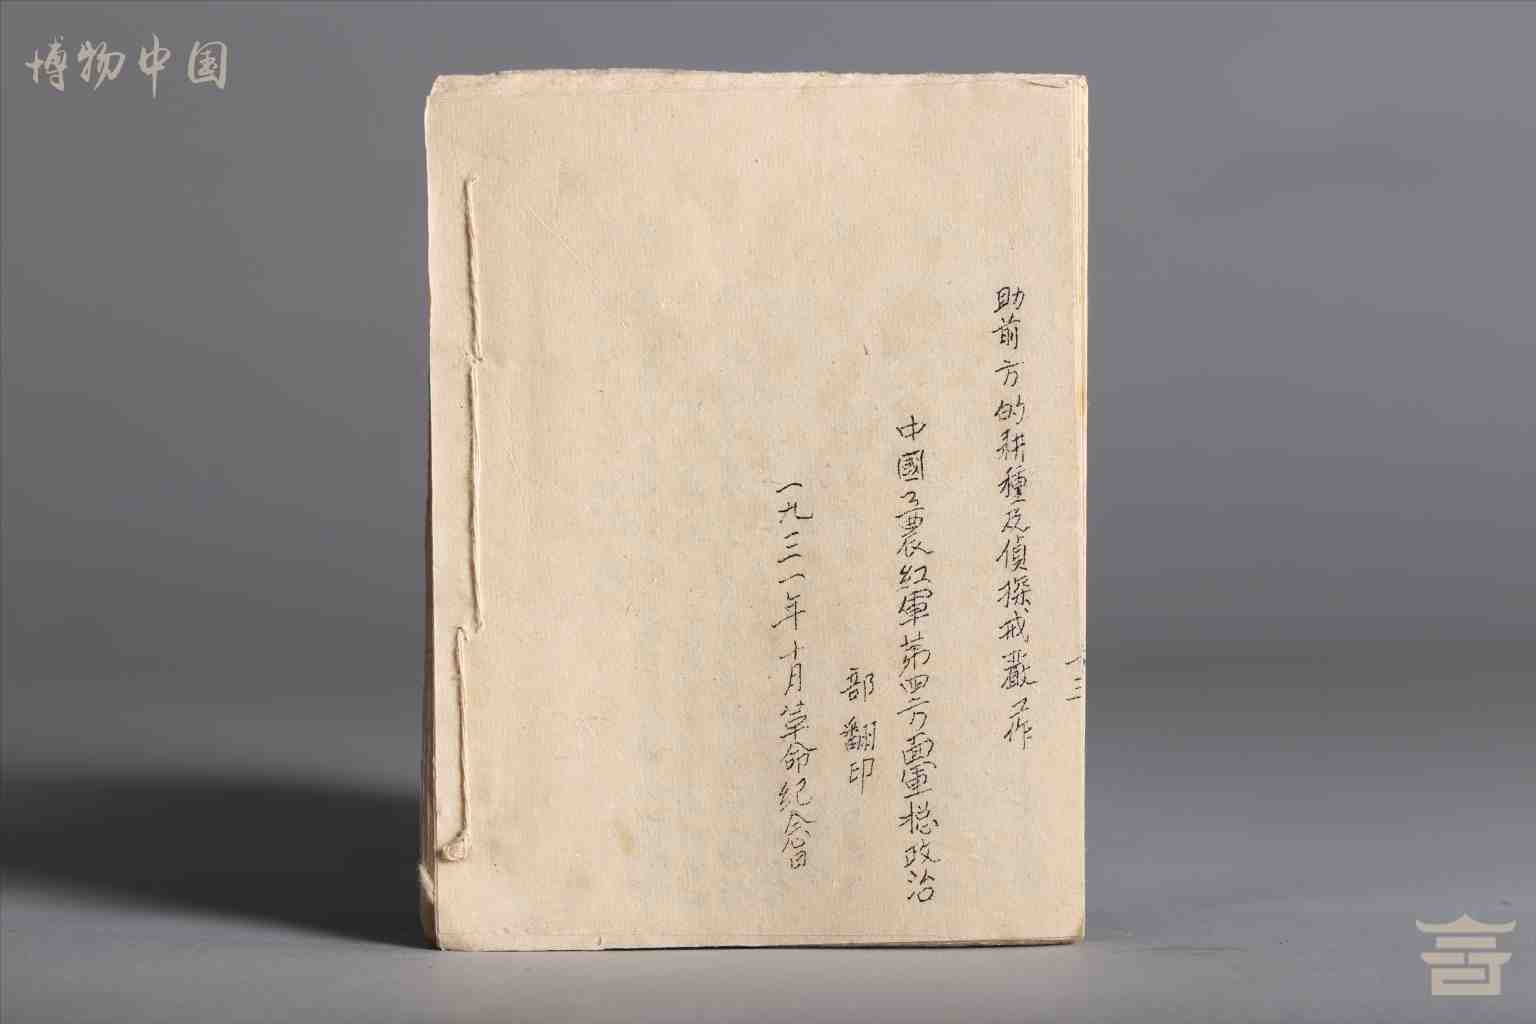 博物中国
十三
助前方的耕種及偵探戒嚴工作
中國工農紅軍第四方面軍總政治
部翻印
一九三一年十月革命紀念日